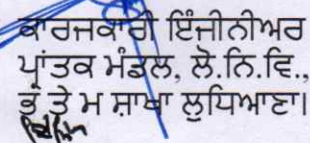 ਕਾਰਜਕਾਰੀ ਇੰਜੀਨੀਅਰ
ਪ੍ਰਾਂਤਕ ਮੰਡਲ, ਲੋ.ਨਿ.ਵਿ.,
ਭ ਤੇ ਮ ਸ਼ਾਖਾ ਲੁਧਿਆਣਾ।